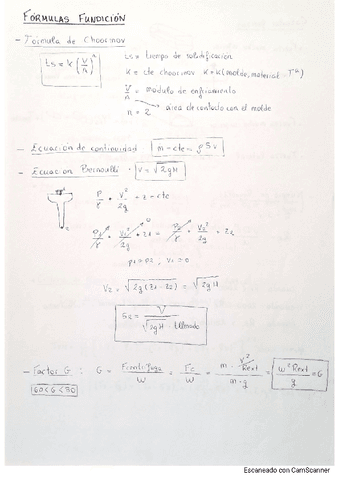 FÓRMULAS FUNDICIÓN
- Fórmula de Choorinov
ts = K (V/A)^n
ts = tiempo de solidificación
K = cte choorinov K = K(molde, material, Tª)
V/A = modulo de enfriamiento
área de contacto con el molde
n = 2
- Ecuación de continuidad m = cte = ρSv
- Ecuacion Bernoulli · V = √2gH
P/γ + V²/2g + z = cte
P1/γ + V1²/2g + z1 = P2/γ + V2²/2g + z2
p1 = p2 ; v1 = 0
V2 = √2g(z1-z2) = √2gH
S2 = V / √2gH · tllenado
- Factor G : G = Fcentrífuga/W = Fc/W = m · V²/Rext / m·g = ω² Rext/g = G
60 < G < 80
Escaneado con CamScanner